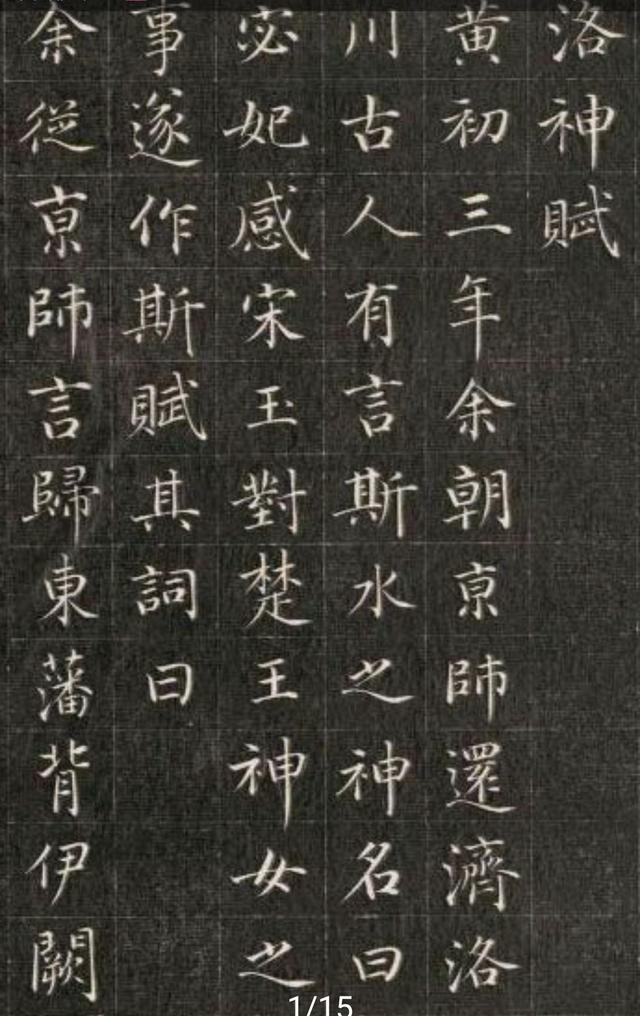 洛神賦
黄初三年余朝亰師還濟洛
川古人有言斯水之神名曰
宓妃感宋玉對楚王神女之
事遂作斯賦其詞曰
余從亰師言歸東藩背伊闕
1/15